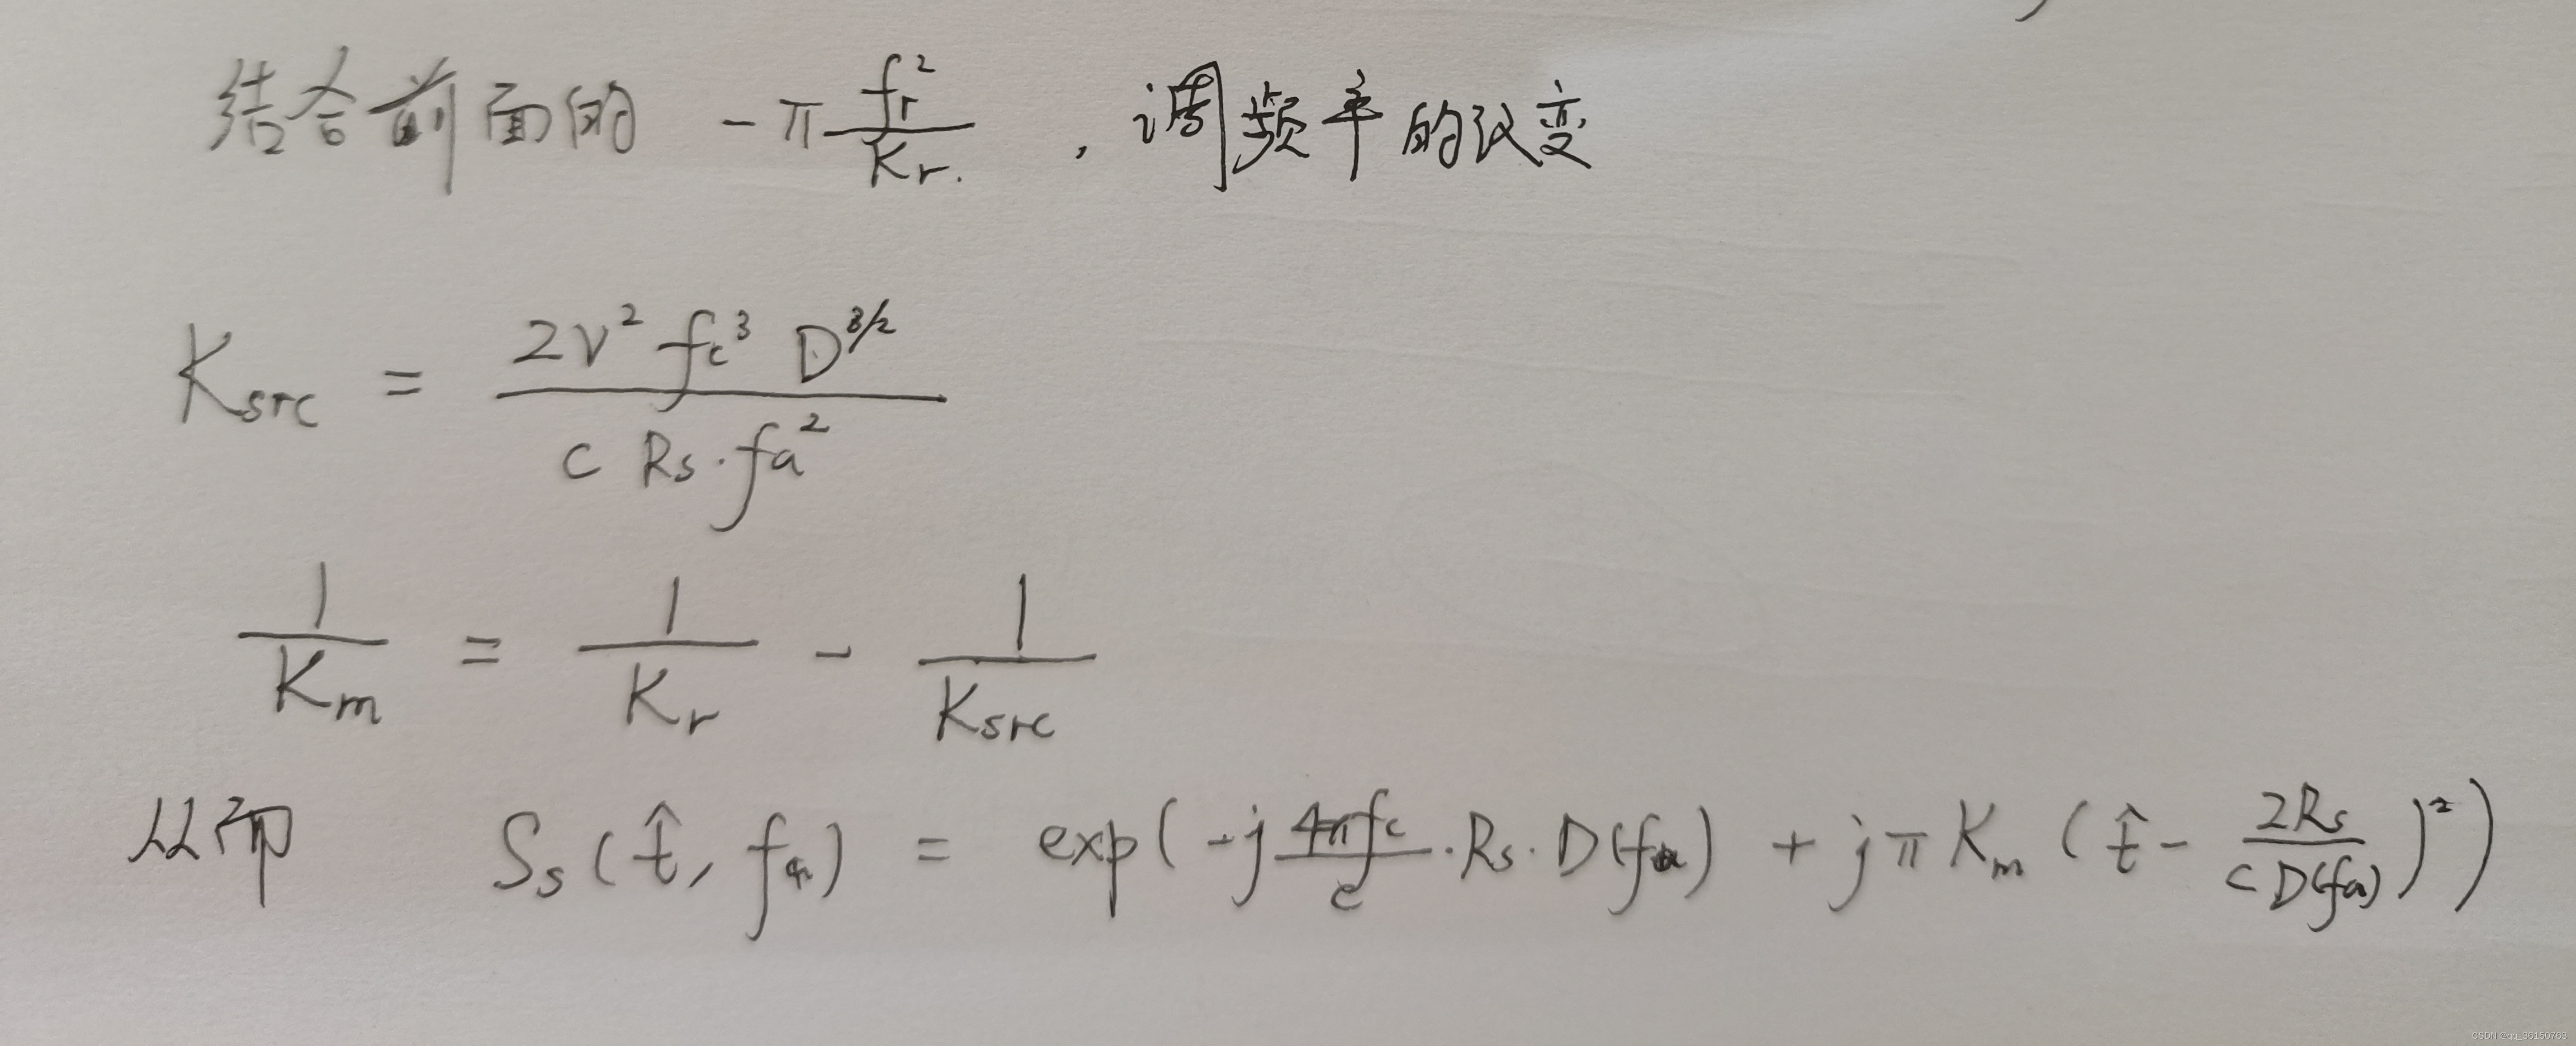 结合前面的 -π fr²/Kr. , 调频率的改变
Ksrc = 2V² fc³ D^3/2 / c Rs·fa²
1/Km = 1/Kr - 1/Ksrc
Ss(t̂, fa) = exp(-j 4πfc/c ·Rs·D(fa) + jπKm(t̂ - 2Rs/cD(fa))²)
CSDN @qq_36150763